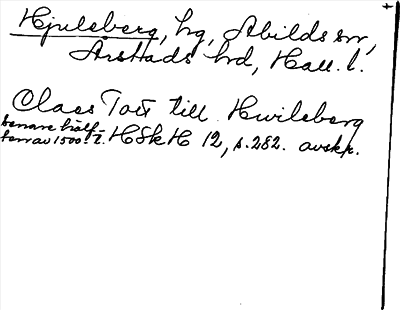 Hjuleberg, hg, Abilds sn,
Årstads hd, Hall. l.
Claes Tott till Hwileberg
senare hälf-
ten av 1500-t. HSkH 12, s. 282. avskr.